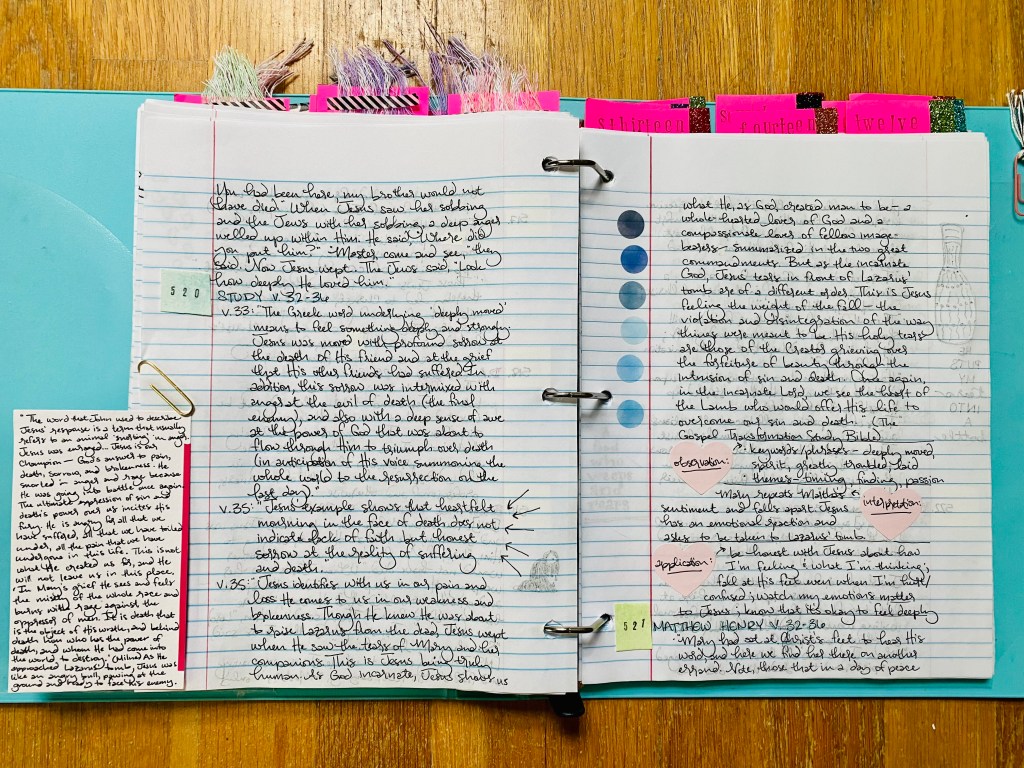 thirteen
fourteen
twelve
You had been here, my brother would not
have died." When Jesus saw her sobbing
and the Jews with her sobbing, a deep anger
welled up within Him. He said, "Where did
you put him?" "Master, come and see," they
said. Now Jesus wept. The Jews said, "Look
how deeply He loved him."
520
STUDY V. 32-36
v.33: "The Greek word underlying 'deeply moved'
means to feel something deeply and strongly.
Jesus was moved with profound sorrow at
the death of His friend and at the grief
that His other friends had suffered. In
addition, this sorrow was intermixed with
anger at the evil of death (the final
enemy), and also with a deep sense of awe
at the power of God that was about to
flow through Him to triumph over death
(in anticipation of His voice summoning the
whole world to the resurrection on the
last day)."
v.35: "Jesus' example shows that heartfelt
mourning in the face of death does not
indicate lack of faith but honest
sorrow at the reality of suffering
and death."
v.35: "Jesus identifies with us in our pain and
loss. He comes to us in our weakness and
brokenness. Though He knew He was about
to raise Lazarus from the dead, Jesus wept
when He saw the tears of Mary and her
companions. This is Jesus being truly
human. As God incarnate, Jesus shows us
"The word that John used to describe
Jesus' response is a term that usually
refers to an animal 'snorting' in anger.
Jesus was enraged... Jesus is our
Champion - God's answer to pain,
death, sorrow, and brokenness. He
snorted in anger and rage because
He was going into battle once again.
The ultimate expression of sin and
death's power over us incites His
fury. He is angry for all that we
have suffered, all that we have toiled
under, all the pain that we have
undergone in this life. This is not
what He created us for, and He
will not leave us in this place.
'In Mary's grief He sees and feels
the misery of the whole race and
burns with rage against the
oppressor of men. It is death that
is the object of His wrath, and behind
death him who has the power of
death, and whom He had come into
the world to destroy.' (Milne) As He
approached Lazarus' tomb, Jesus was
like an angry bull, pawing at the
ground and ready to face His enemy.
what He, as God, created man to be - a
whole-hearted lover of God and a
compassionate lover of fellow image-
bearers - summarized in the two great
commandments. But as the incarnate
God, Jesus' tears in front of Lazarus'
tomb are of a different order. This is Jesus
feeling the weight of the fall - the
violation and disintegration of the way
things were meant to be. His holy tears
are those of the Creator grieving over
the forfeiture of beauty through the
intrusion of sin and death. Once again,
in the incarnate Lord, we see the heart of
the Lamb who would offer His life to
overcome our sin and death." (The
Gospel Transformation Study Bible)
observation: keywords/phrases - deeply moved,
spirit, greatly troubled, laid
themes - timing, finding, passion
interpretation: Mary repeats Martha's
sentiment and falls apart. Jesus
has an emotional reaction and
asks to be taken to Lazarus' tomb.
application: be honest with Jesus about how
I'm feeling & what I'm thinking;
fall at His feet even when I'm hurt/
confused; watch my emotions matter
to Jesus; know that it's okay to feel deeply
521
MATTHEW HENRY V. 32-36
"Mary had sat at Christ's feet to hear His
word, and here we find her there on another
errand. Note, those that in a day of peace